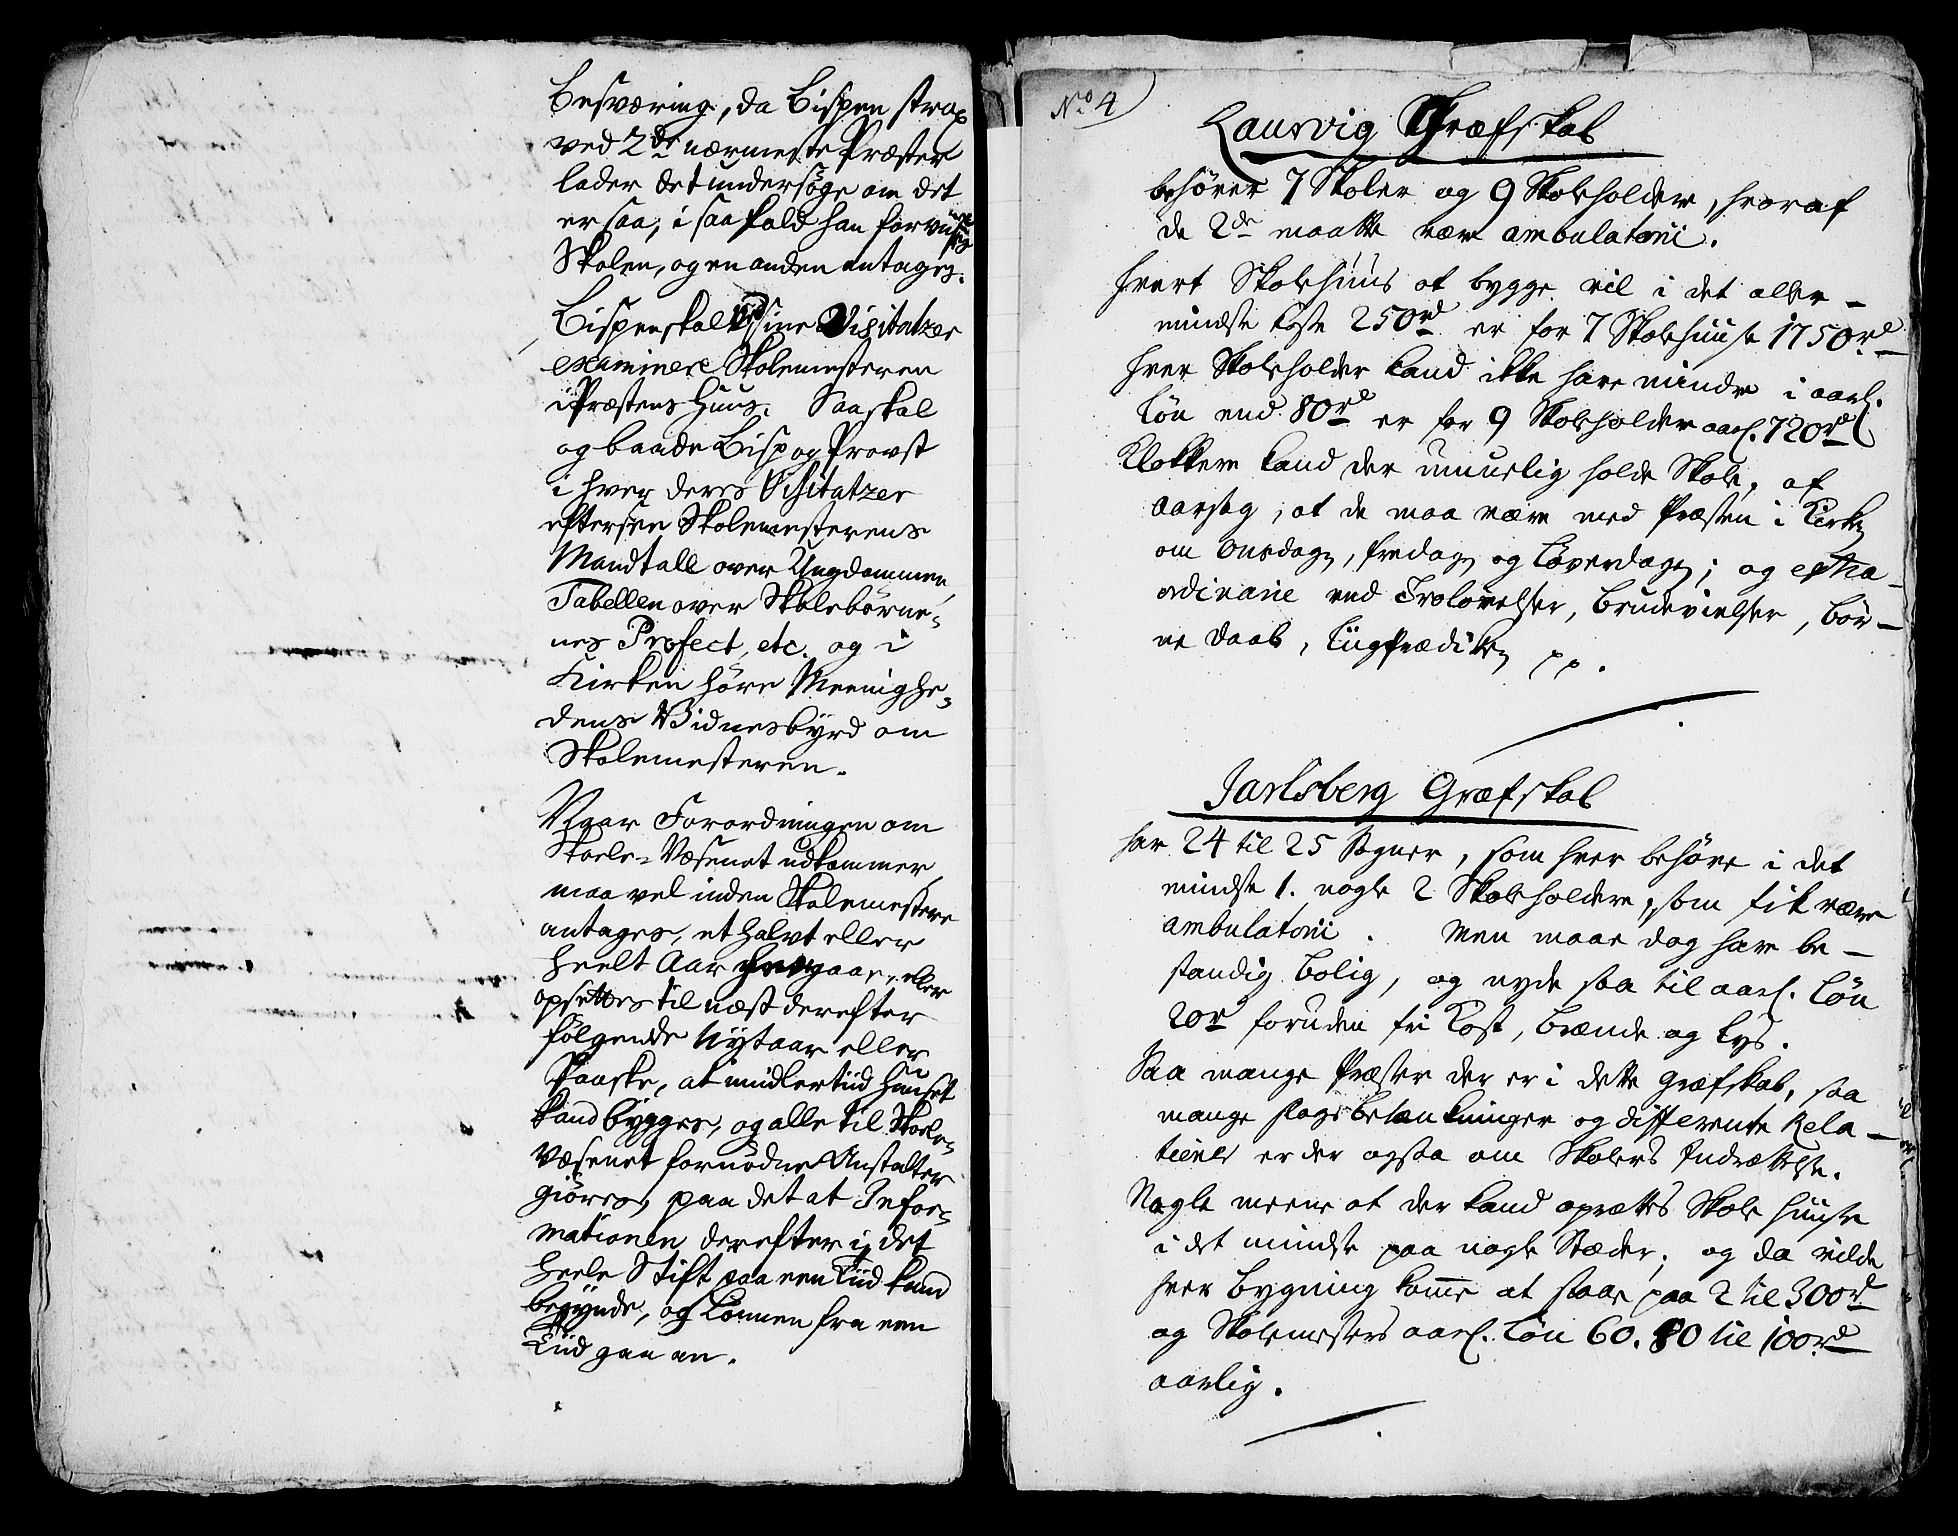 Besværing, da Bispen strax
ved 2de nærmeste Præster
lader det undersøge om det
er saa, i saa fald han forviises
Skolen, og en anden antages.
Bispen skal ved sine Visitatzer
examinere Skolemesteren
i Præstens Huus. Saa skal
og baade Bisp og Provst
i hver deres Visitatzer
eftersee Skolemesterens
Mandtall over Ungdommen,
Tabellen over Skolebørne-
nes Profect, etc. og i
Kirken høre Meenighe-
dens Vidnesbyrd om
Skolemesteren.
Naar Forordningen om
Skole-Væsenet udkommer
maa vel inden Skolemestere
antages, et halvt eller
heelt Aar forgaae, eller
opsettes til næst derefter
følgende Nytaar eller
Paaske, at midlertiid Huuset
kand bygges, og alle til Skole-
Væsenet fornødne Anstalter
giøres, paa det at Infor-
mationen derefter i det
heele Stift paa een Tiid kand
begynde, og Lønnen fra een
Tiid gaa an.
No 4
Laurvig Græfskab
behøver 7 Skoler og 9 Skoleholdere, hvoraf
de 2de maatte være ambulatorii.
Hvert Skolehuus at bygge vil i det aller-
mindste koste 250rd er for 7 Skolehuuse 1750rd
Hver Skoleholder kand ikke have mindre i aarl.
Løn end 80rd er for 9 Skoleholdere aarl. 720rd
Klokkere kand der umuelig holde Skole, af
aarsag, at de maa være med Præsten i Kirken
om Onsdagen, Fredagen og Løverdagen; og extra-
ordinarie ved Trolovelser, Brudevielser, Bør-
ne Daab, Liigprædiken pp.
Jarlsberg Græfskab
har 24 til 25 Sogner, som hver behøve i det
mindste 1. nogle 2 Skoleholdere, som fik være
ambulatorii. Men maae dog have be-
standig Bolig, og nyde saa til aarl. Løn
20rd foruden fri Kost, Brænde og Lys.
Saa mange Præster der er i dette Græfskab, saa
mange slags betænkninger og differente Rela-
tioner er der ogsaa om Skolers Indrættelse.
Nogle meene at der kand oprættes Skole Huuse
i det mindste paa nogle Stæder; og da vilde
hver Bygning komme at staae paa 2 til 300rd
og Skolemesters aarl. Løn 60. 80 til 100rd
aarlig.